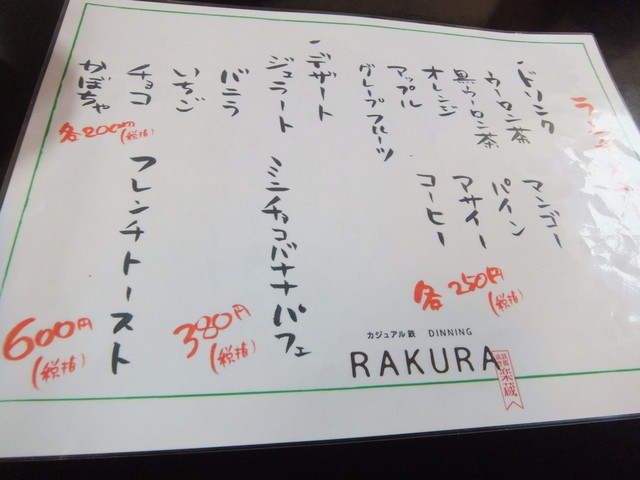 ドリンク
ウーロン茶
黒ウーロン茶
オレンジ
アップル
グレープフルーツ
マンゴー
パイン
アサイー
コーヒー
各250円
(税抜)
デザート
ジェラート
バニラ
いちご
チョコ
かぼちゃ
各200円
(税抜)
ミニチョコバナナパフェ
380円
(税抜)
フレンチトースト
600円
(税抜)
カジュアル鉄 DINNING
RAKURA
楽蔵